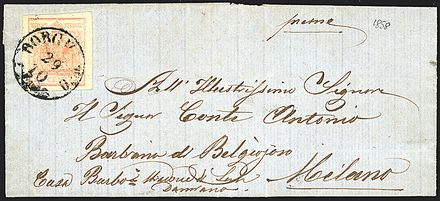 preme
1858
BORGO
29
10
All' Illustrissimo Signore
Il Signor Conte Antonio
Barbiano di Belgiojoso
Casa Barbò
Damiano
Milano